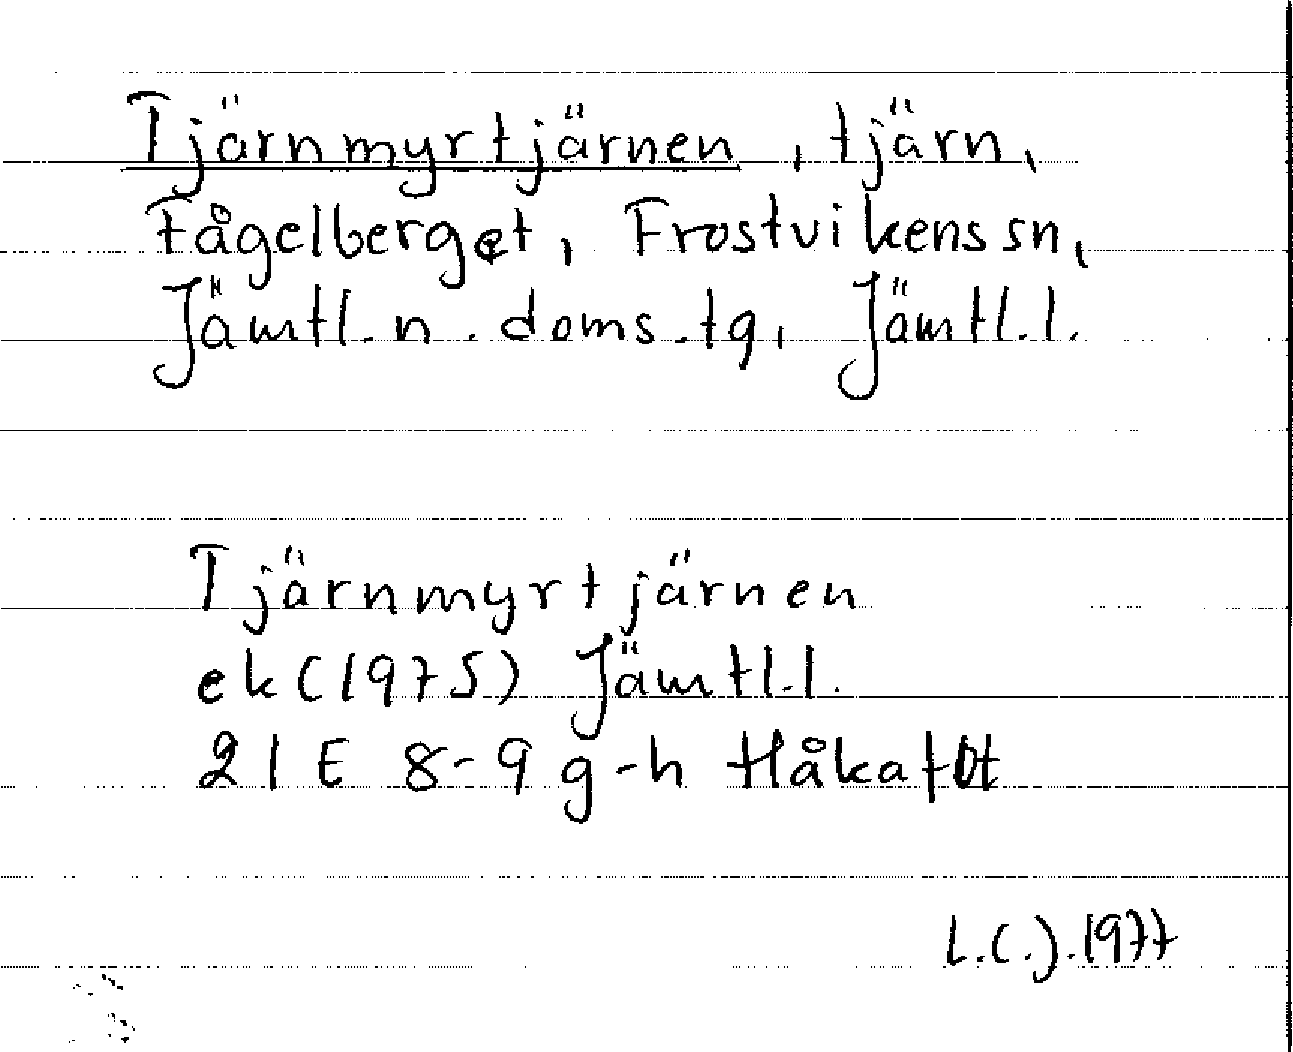 Tjärnmyrtjärnen, tjärn,
Fågelberget, Frostvikens sn,
Jämtl. n. doms. tg, Jämtl. l.
Tjärnmyrtjärnen
ek (1975) Jämtl. l.
21 E 8-9 g-h Håkafot
L.C.J. 1977